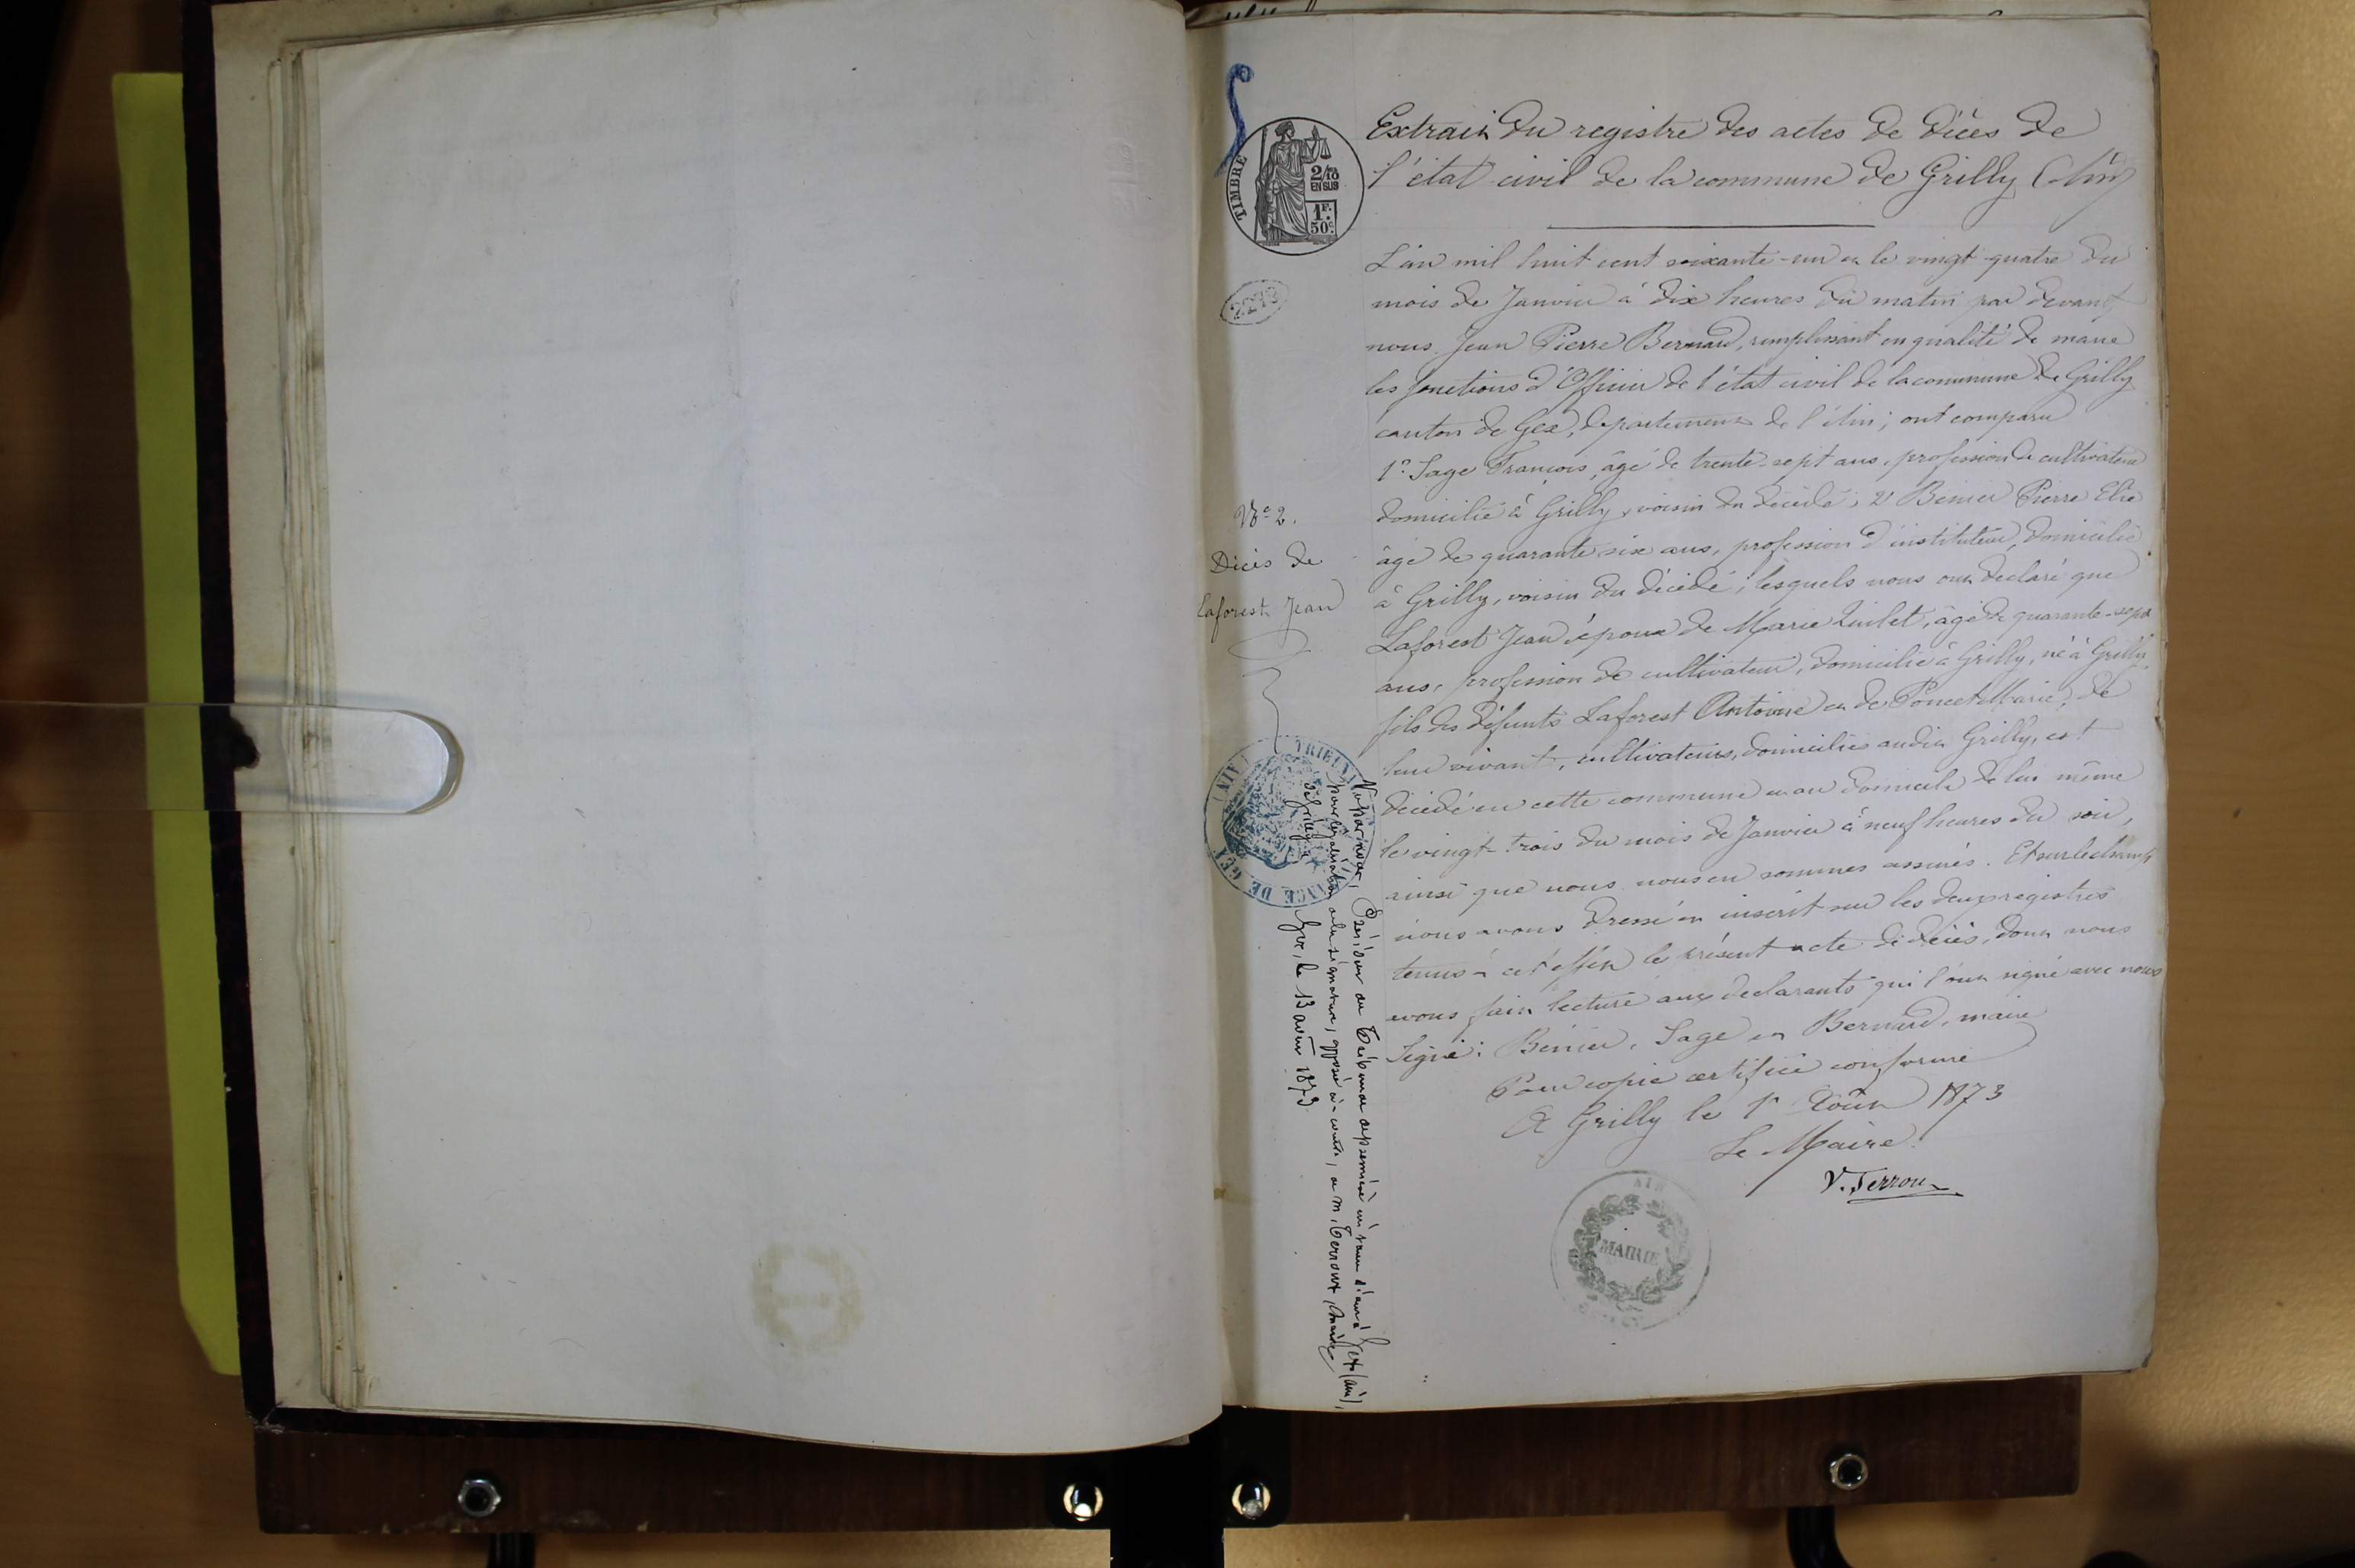 Extrait du registre des actes de décès de
l'état civil de la commune de Grilly (Ain)
TIMBRE
2/10
EN SUS
1F.
50c.
2273
L'an mil huit cent soixante-un et le vingt-quatre du
mois de Janvier à dix heures du matin par devant
nous Jean Pierre Bernard, remplissant en qualité de maire
les fonctions d'Officier de l'état civil de la commune de Grilly
canton de Gex, département de l'Ain; ont comparu
1º Sage François, âgé de trente-sept ans, profession de cultivateur
domicilié à Grilly, voisin du décédé; 2º Bénier Pierre Elie
âgé de quarante six ans, profession d'instituteur, domicilié
à Grilly, voisin du décédé; lesquels nous ont déclaré que
Laforest Jean époux de Marie, âgé de quarante-sept
ans, profession de cultivateur, domicilié à Grilly, né à Grilly,
fils des défunts Laforest Antoine et de Poncet Marie, de
leur vivant, cultivateurs, domiciliés audit Grilly, est
décédé en cette commune et au domicile de lui même
le vingt-trois du mois de Janvier à neuf heures du soir,
ainsi que nous nous en sommes assurés. Et sur le champ
nous avons dressé et inscrit sur les deux registres
tenus à cet effet le présent acte de décès, dont nous
avons fait lecture aux déclarants qui l'ont signé avec nous
Signé: Bénier, Sage et Bernard, maire
Pour copie certifiée conforme
A Grilly le 1er Août 1873
Le Maire
V. Terroux
AIN
MAIRIE
Nº 2.
Décès de
Laforest Jean
TRIBUNAL
DE GEX
(AIN)
Vu par nous, Président du Tribunal de première instance séant à Gex (Ain),
pour légalisation de la signature, apposée ci-contre, de M. Terroux, Maire
de Grilly.
Gex, le 13 août 1873